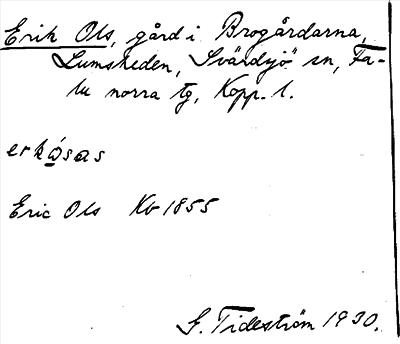 Erik Ols, gård i Brogårdarna,
Lumsheden, Svärdsjö sn, Fa-
lu norra tg, Kopp. l.
erkǫ́sas
Eric Ols Kb 1855
G. Tideström 1930.